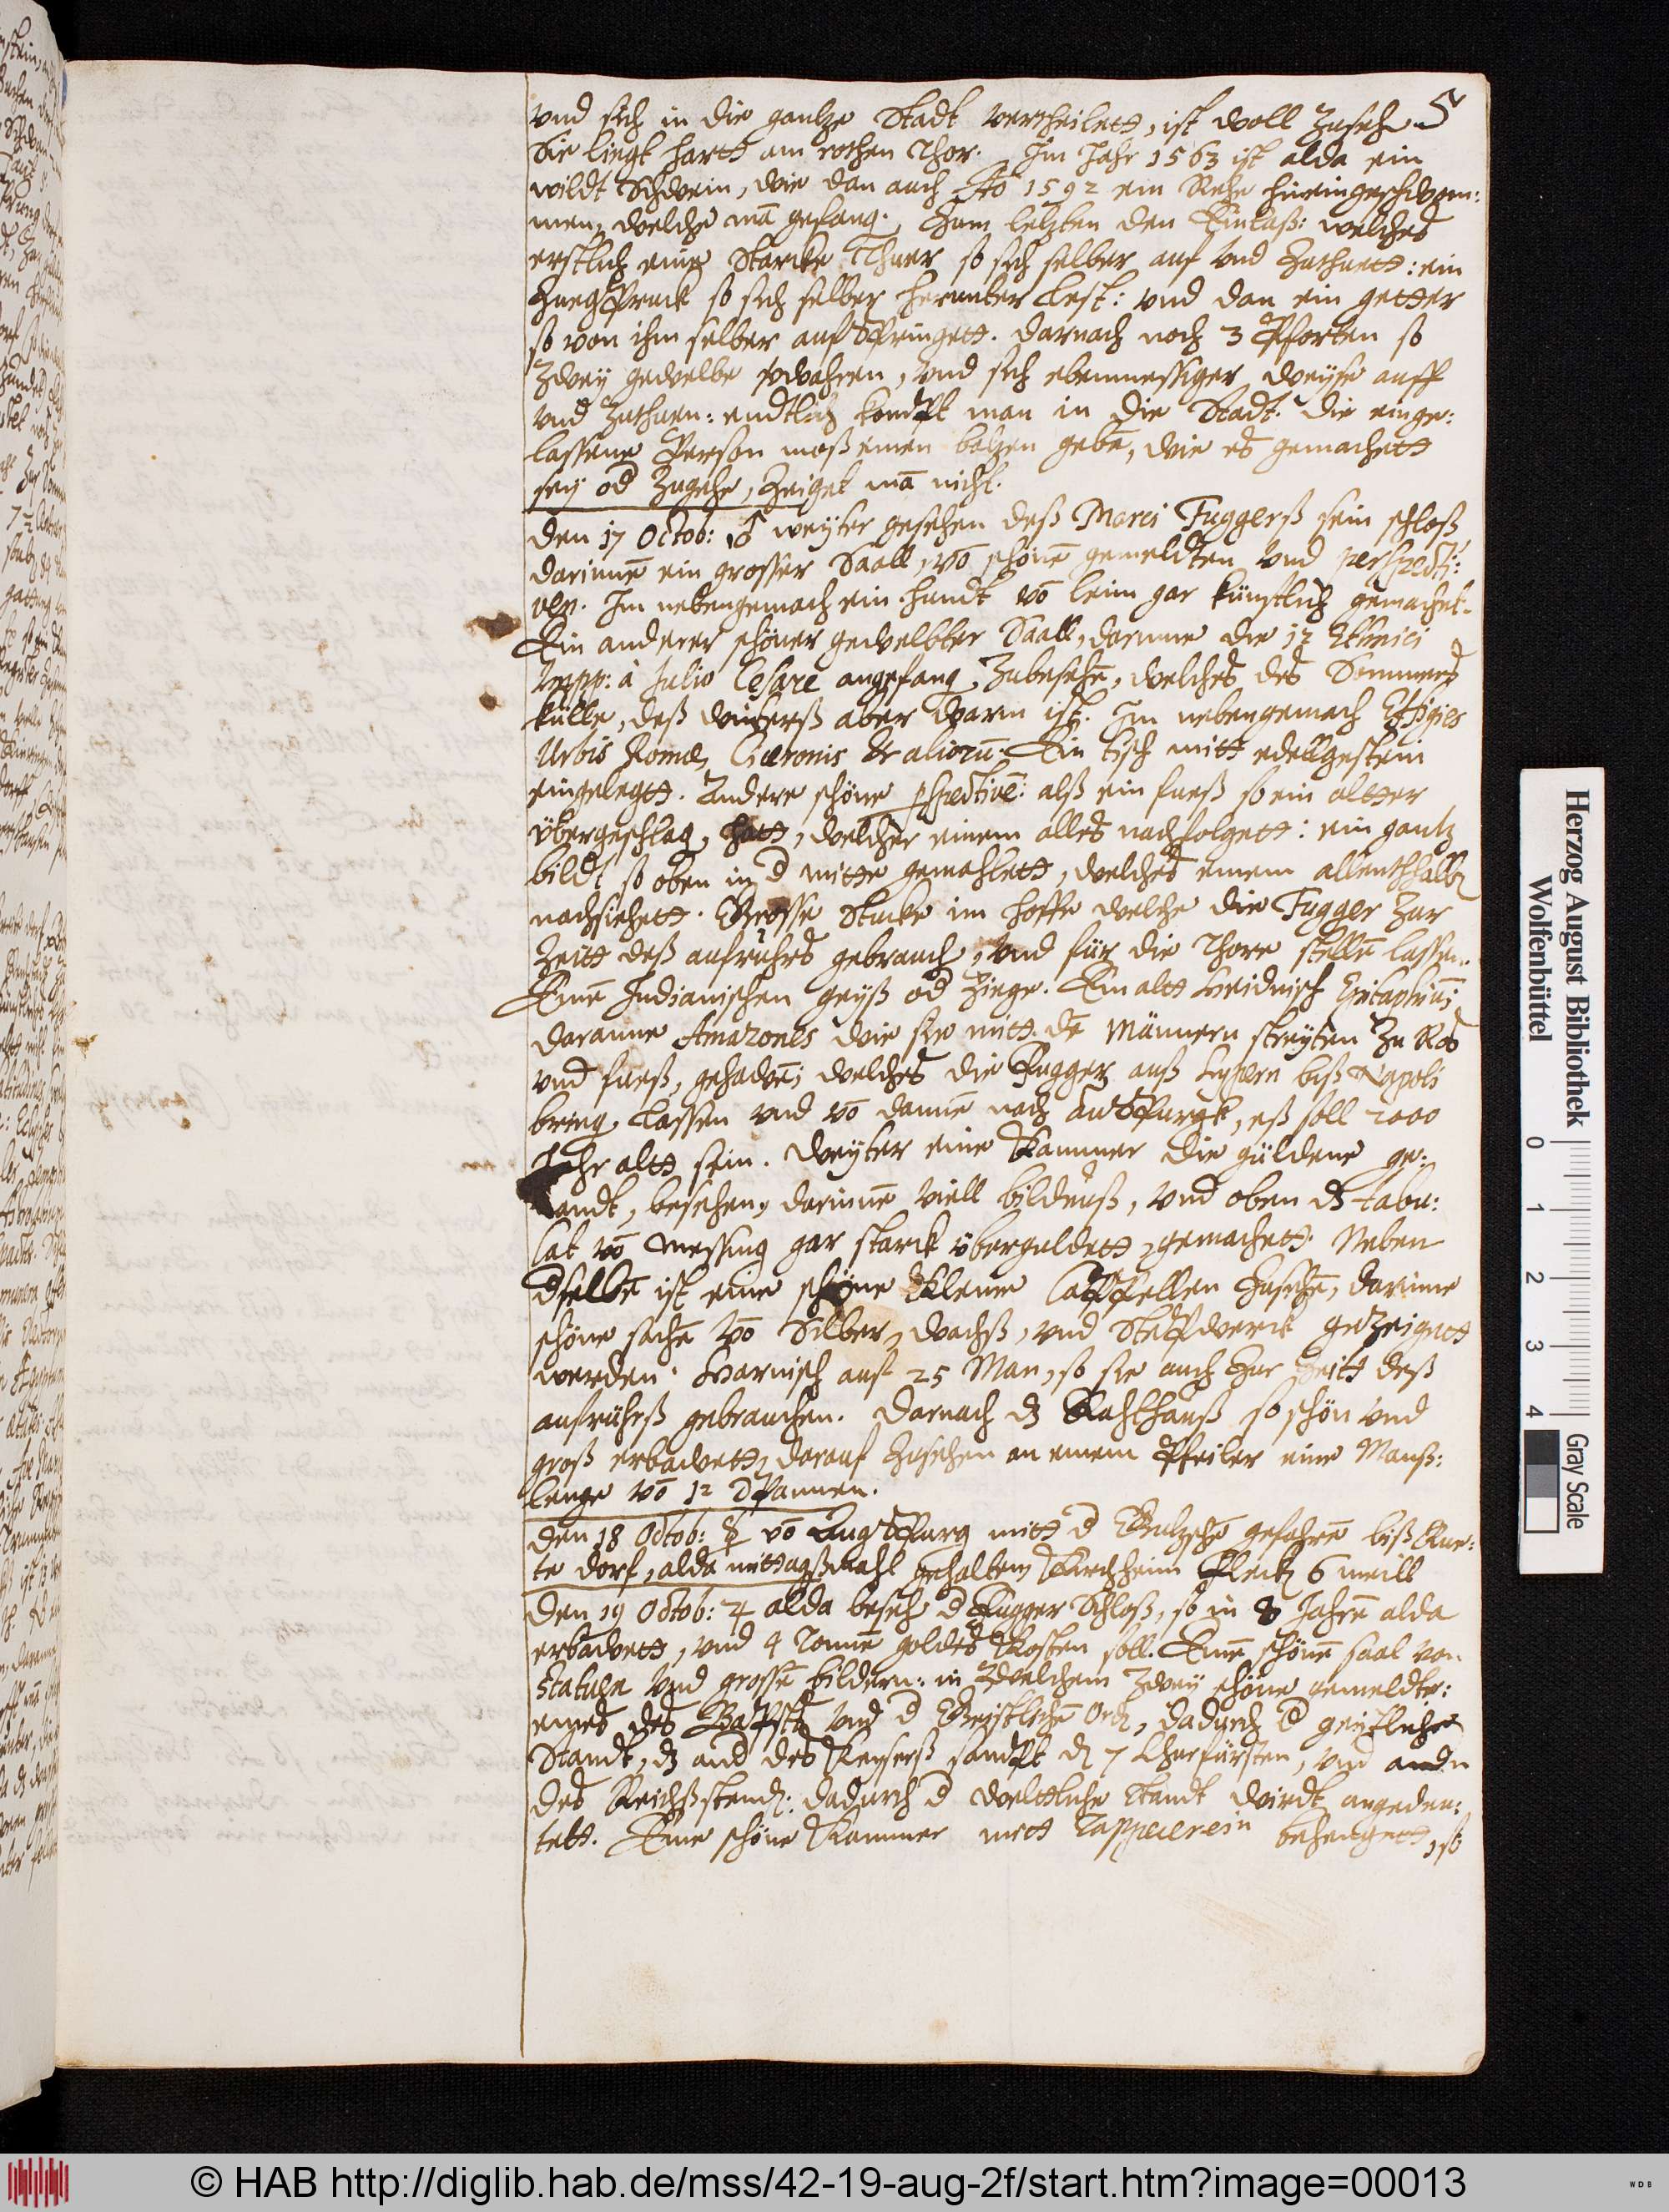 5
vnd sich in die gantze Stadt vertheilett, ist woll zuseh.
Sie liegt hartt am rothen Thor. Im Jahr 1563 ist alda ein
wildt Schwein, wie dan auch Aō 1592 ein Rehe hineingeschwom:
men, welche mā gefang. Zum letzten den Einlaß: welches
erstlich eine Starcke Thuer so sich selber auf vnd zuthuett: ein
Zuegspruck so sich selber herunter lest: vnd dan ein getter
so von ihm selber aufspringett. darnach noch 3 Pforten so
zwey gewelbe verwahren, vnd sich ebenmessiger weyse auff
vnd zuthuen: endtlich kompt man in die Stadt. die einge:
lassene Person muß einen batzen gebē, wie es gemachett
sey od zugehe, zeiget mā nicht.
den 17 Octob: ♂ weyter gesehen deß Marci Fuggerß sein schloß
darinnē ein grosser Saall, vō schönē gemeldten vnd perspecti:
ven. Im nebengemach ein hundt vō leim gar künstlich gemachet.
Ein anderer schöner gewelbter Saall, darinne die 12 Ethnici
Impp: à Julio Cesare angefang, zubesehē, welches des Sommers
külle, deß winterß aber warm ist. Im nebengemach Effigies
Urbis Romæ, Ciceronis & aliorū. Ein tisch mitt edellgestein
eingelegtt. Andere schöne pspectivē: alß ein fueß so ein altter
übergeschlag, hatt, welcher einem alles nachfolgett: ein gantz
bildt so oben in d mitte gemahlett, welches einem allenthalbē
nachsiehett. Grosse Stucke im hoffe welche die Fugger zur
Zeitt deß aufruhrs gebrauch, vnd für die thore stellē lassen.
Einē Indianischen geyß od Ziege. Ein altt Heidnisch Epitaphiū
daranne Amazones wie sie mitt dē Männern streyten zu Ros
vnd fueß, gehawē; welches die Fugger auß Cypern biß Napoli
bring, lassen vnd vō dannē nach Außpurgk, eß soll 2000
Jahr altt sein. Weyter eine Kammer die güldene ge:
nandt, besehen, darinnē viell bildnuß, vnd oben dz tabu:
lat vō Messing gar starck übergüldett, gemachett. Neben
dselbē ist eine schöne Kleine Cappellen zusehē, darinne
schöne sachē vō Silber, wachß, vnd werck gezeigett
werden. Harnisch auf 25 Man, so sie auch zur zeitt deß
aufrührß gebrauchen. Darnach dz Rahthauß so schön vnd
groß erbawett, darauf zusehen an einem Pfeiler eine Manß:
lenge vō 12 Spannen.
den 18 Octob: ☿ vō Augspurg mitt d gefahrē biß
te dorf, alda mittagßmahl gehalten Kirchheim Fleck 6 meill
den 19 Octob: ♃ alda beseh d Fugger Schloß, so in 8 Jahrē alda
erbawett, vnd 4 Tonnē goldes Kosten soll. Einē schönē saal von
Statuen vnd grossē bildern: in welchem zwey schöne gemeldte:
eines des Bapsts vnd d Geistlichē Ord, dadurch d geistliche
Standt, dz and des Keyserß sampt d 7 Churfürsten, vnd andn
des Reichßstend: dadurch d weltliche Standt wirdt angedeu:
tett. Eine schöne Kammer mitt Tappecerein behengett, so
Herzog August Bibliothek
Wolfenbüttel
0 1 2 3 4
Gray Scale
© HAB http://diglib.hab.de/mss/42-19-aug-2f/start.htm?image=00013
WDB